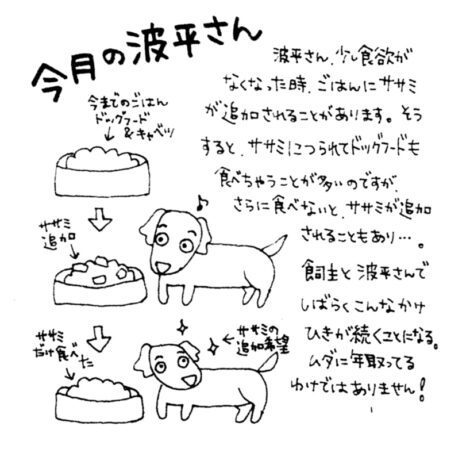 今月の波平さん
波平さん、少し食欲が
なくなった時、ごはんにササミ
が追加されることがあります。そう
すると、ササミにつられてドッグフードも
食べちゃうことが多いのですが、
さらに食べないと、ササミが追加
されることもあり…。
飼主と波平さんで
しばらくこんなかけ
ひきが続くことになる。
ムダに年取ってる
わけではありません!
今までのごはん
ドッグフード
&キャベツ
ササミ
追加
ササミ
だけ食べた
ササミの
追加希望